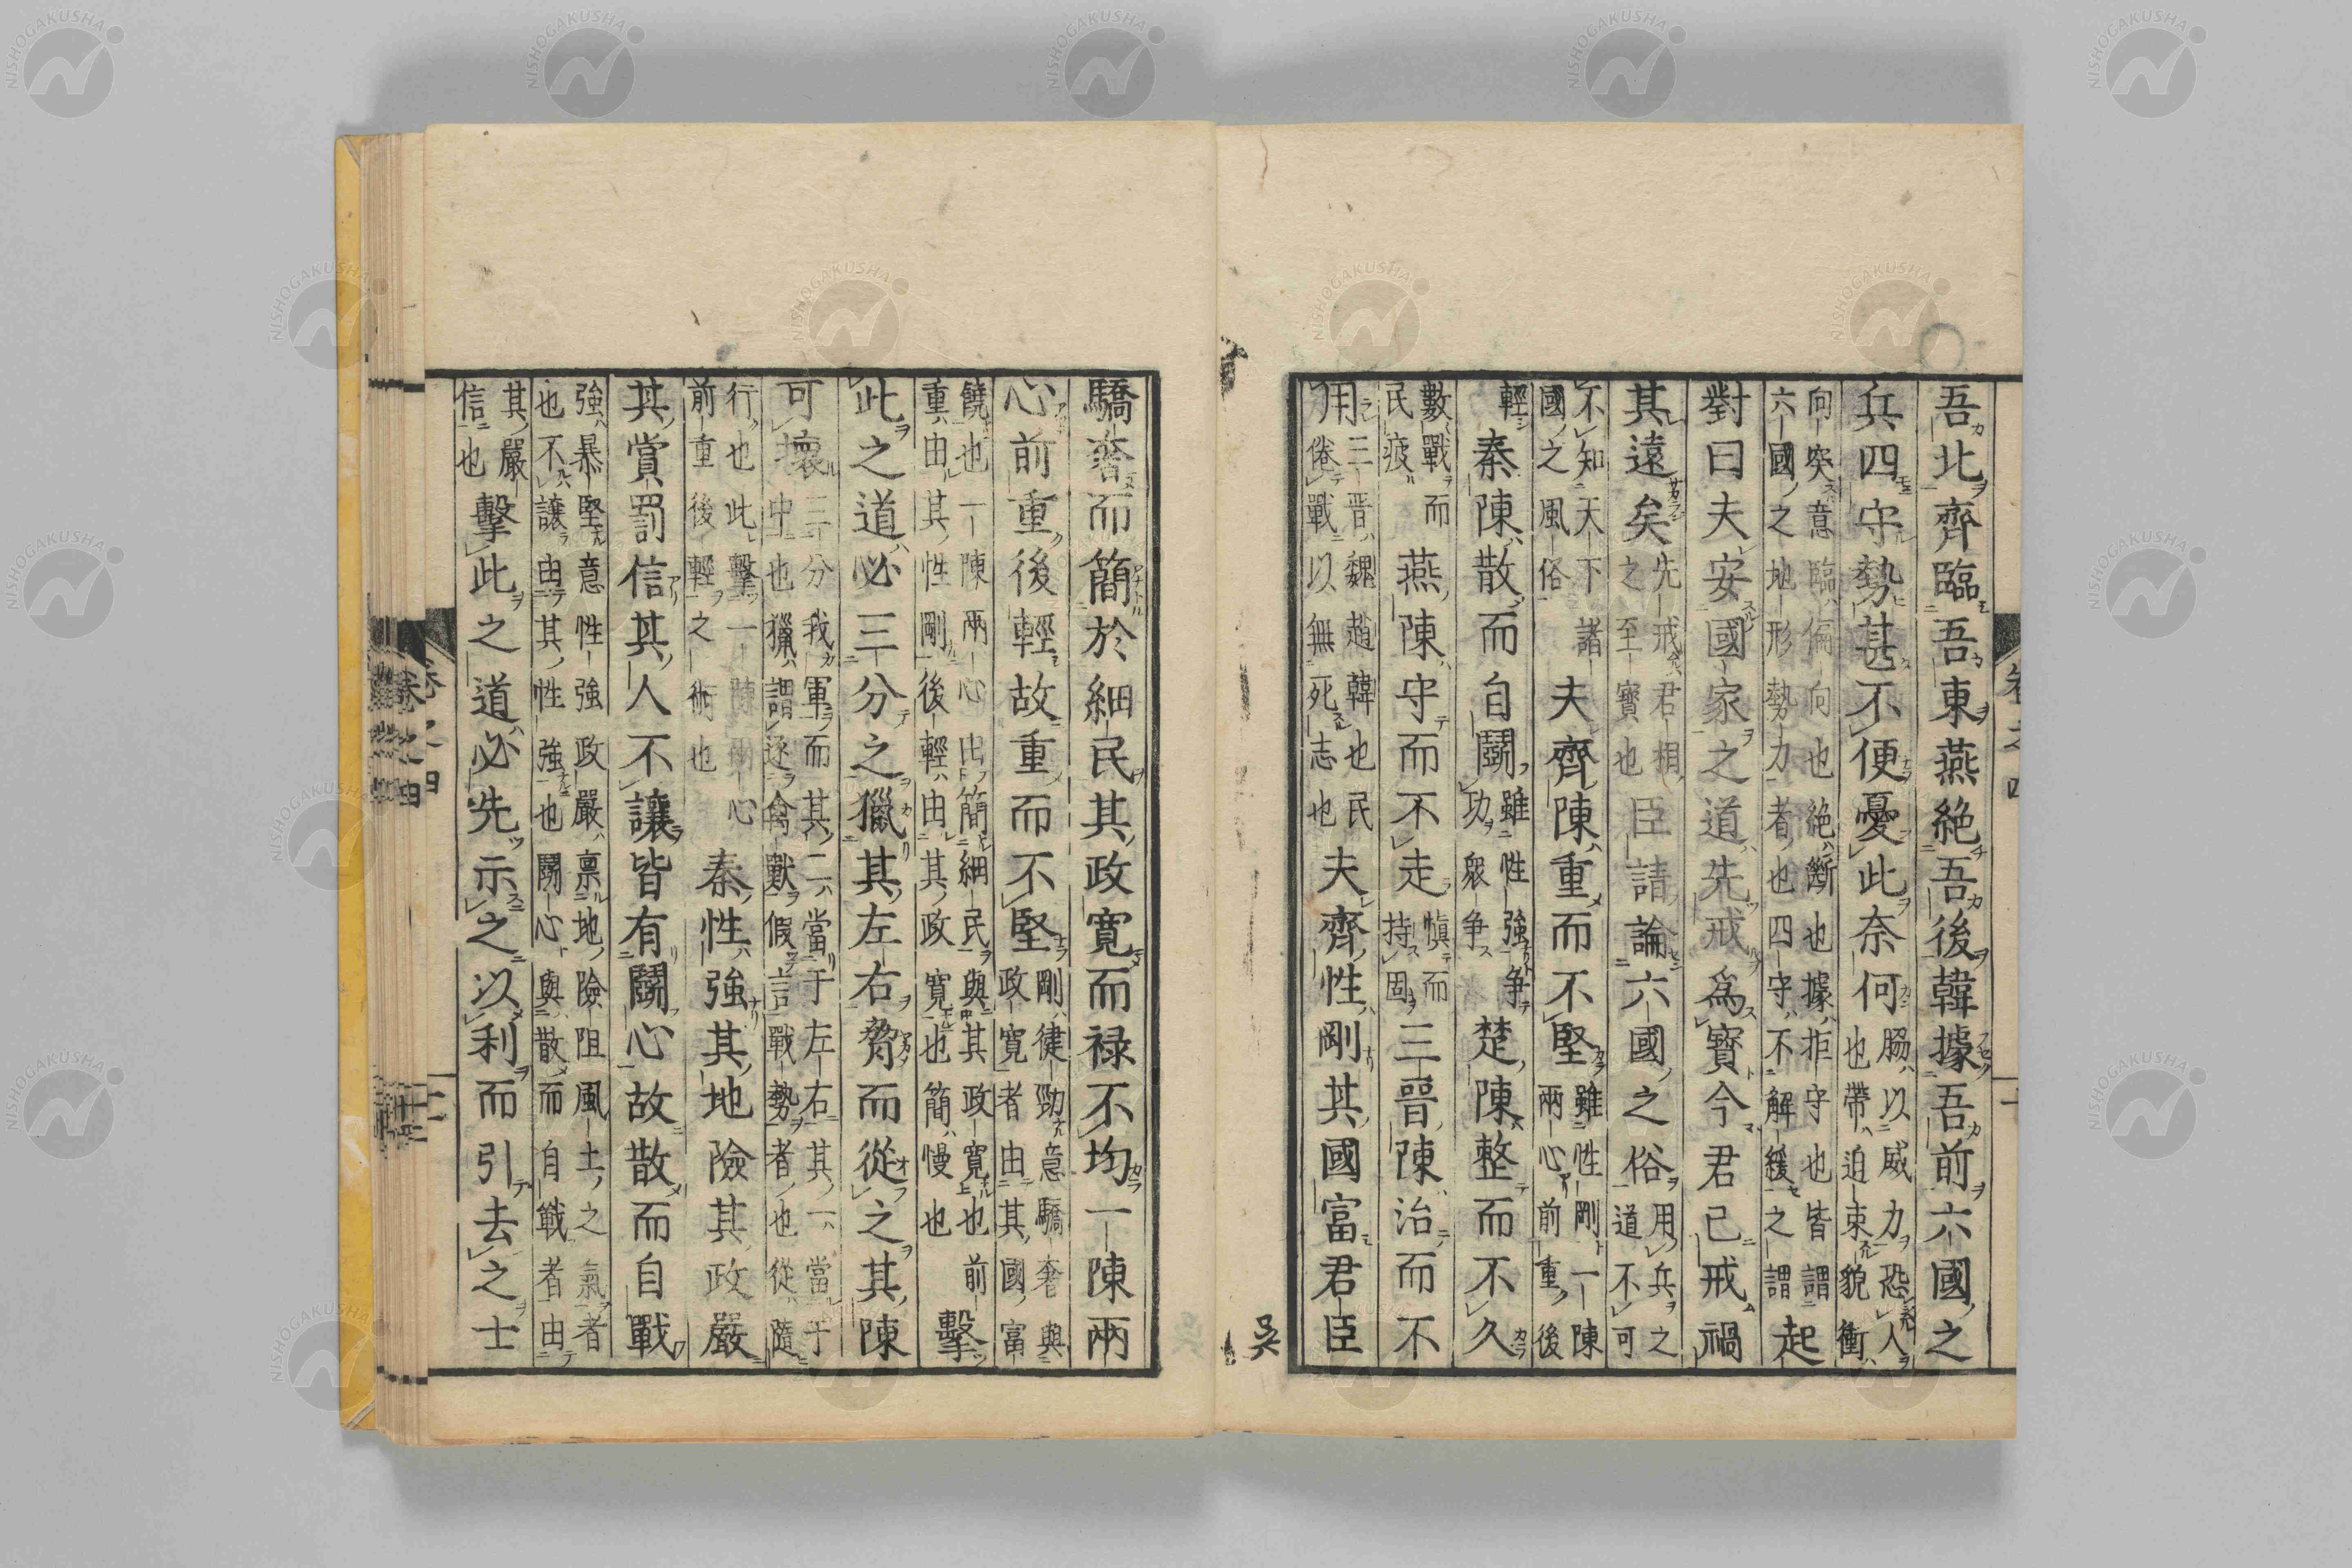 吾北齊臨吾東燕絶吾後韓據吾前六國之
兵四守勢甚不便憂此奈何
脇以威力恐人
也帶迫束貌衝
向突意臨偏向也絶斷也據拒守也皆謂
六國之地形勢力者也四守不解緩之謂
起
對曰夫安國家之道先戒爲寳今君已戒禍
其遠矣
先戒君相
之至寳也
臣請論六國之俗
用兵之
道不可
不知天下諸
國之風俗
夫齊陳重而不堅
雖性剛一陳
兩心前重後
輕
秦陳散而自鬪
雖性強争
功衆争
楚陳整而不久
數戰而
民疲
燕陳守而不走
愼而
持固
三晉陳治而不
用
三晉魏趙韓也民
倦戰以無死志也
夫齊性剛其國富君臣
吳
驕奢而簡於細民其政寛而禄不均一陳兩
心前重後輕故重而不堅
剛健勁意驕奢與
政寛者由其國富
饒也一陳兩心出簡細民與其政寛也前
重由其性剛後輕由其政寛也簡慢也
擊
此之道必三分之獵其左右脅而從之其陳
可壞
三分我軍而其二當于左右其一當于
中也獵謂逐禽獸假言戰勢者也從隨
行也此擊一陳兩心
前重後輕之術也
秦性強其地險其政嚴
其賞罰信其人不讓皆有鬪心故散而自戰
強暴堅意性強政嚴禀地險阻風土之氣者
也不讓由其性強也鬪心與散而自戰者由
其嚴
信也
擊此之道必先示之以利而引去之士
卷之四
NISHOGAKUSHA